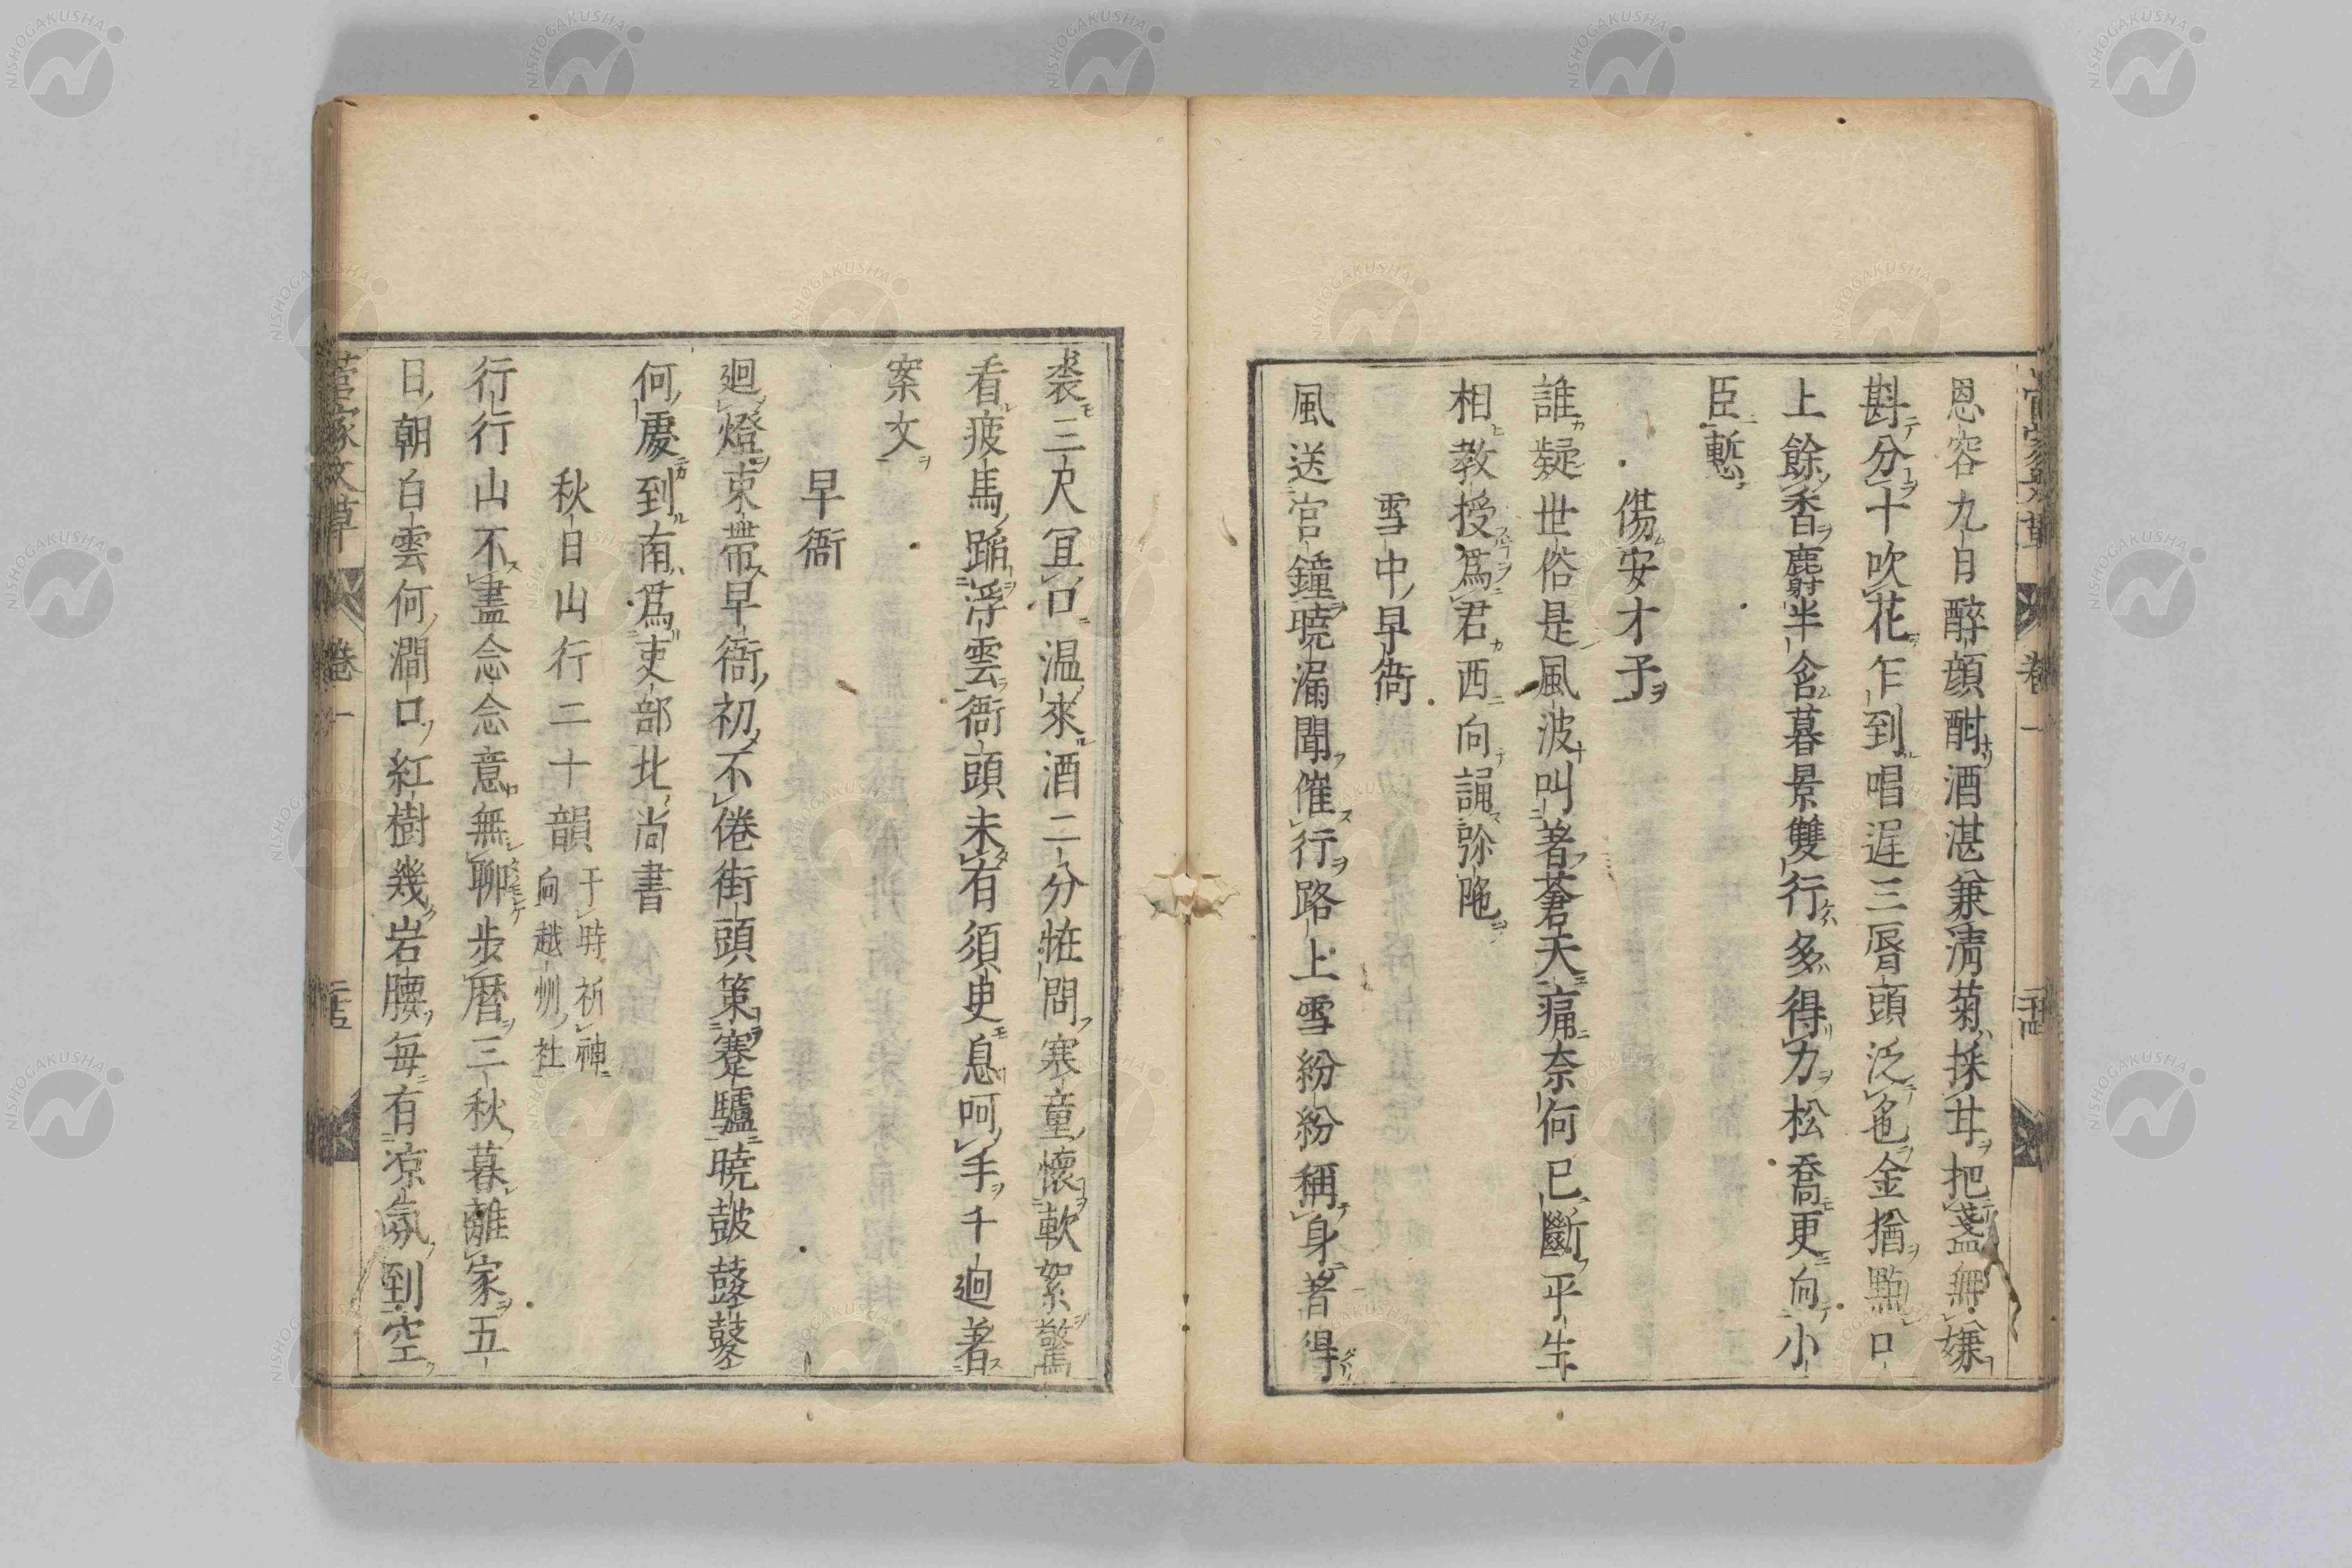 恩容九日醉顔酣酒湛兼淸菊採甘把盞無嫌
斟分十吹花乍到唱遅三唇頭泛色金猶點口
上餘香麝半含暮景雙行多得力松喬更向小
臣慙
傷安才子
誰疑世俗是風波叫著蒼天痛奈何已斷平生
相教授爲君西向誦弥陁
雪中早衙
風送官鐘曉漏聞催行路上雪紛紛稱身着得
裘三尺冝口温來酒二分恠問寒童懷軟絮驚
看疲馬蹈浮雲衙頭未有須臾息呵手千廻著
案文
早衙
廻燈束帶早衙初不倦街頭策蹇驢曉鼓鼕鼕
何處到南爲吏部北尚書
秋日山行二十韻
于時祈神
向越州社
行行山不盡念念意無聊步曆三秋暮離家五
日朝白雲何澗口紅樹幾岩腰每有凉氛到空
菅家文草 卷一
NISHOGAKUSHA